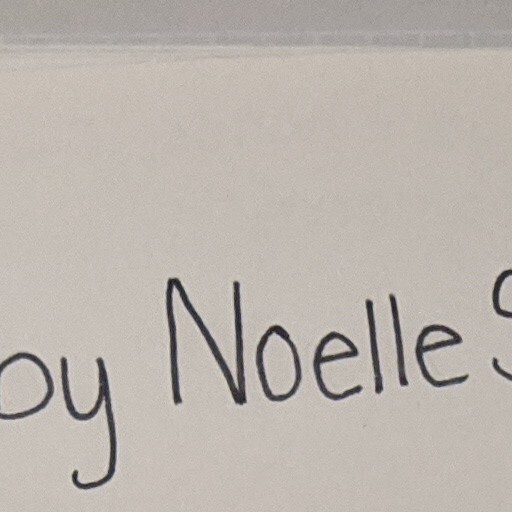 oy Noelle S